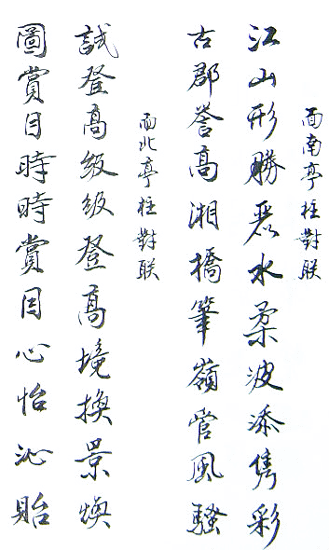 面南亭柱對联
江山形勝恶水柔波添隽彩
古郡誉高湘橋筆嶺管風騷
面北亭柱對联
試登高級級登高境換景煥
圖賞目時時賞目心怡沁貽